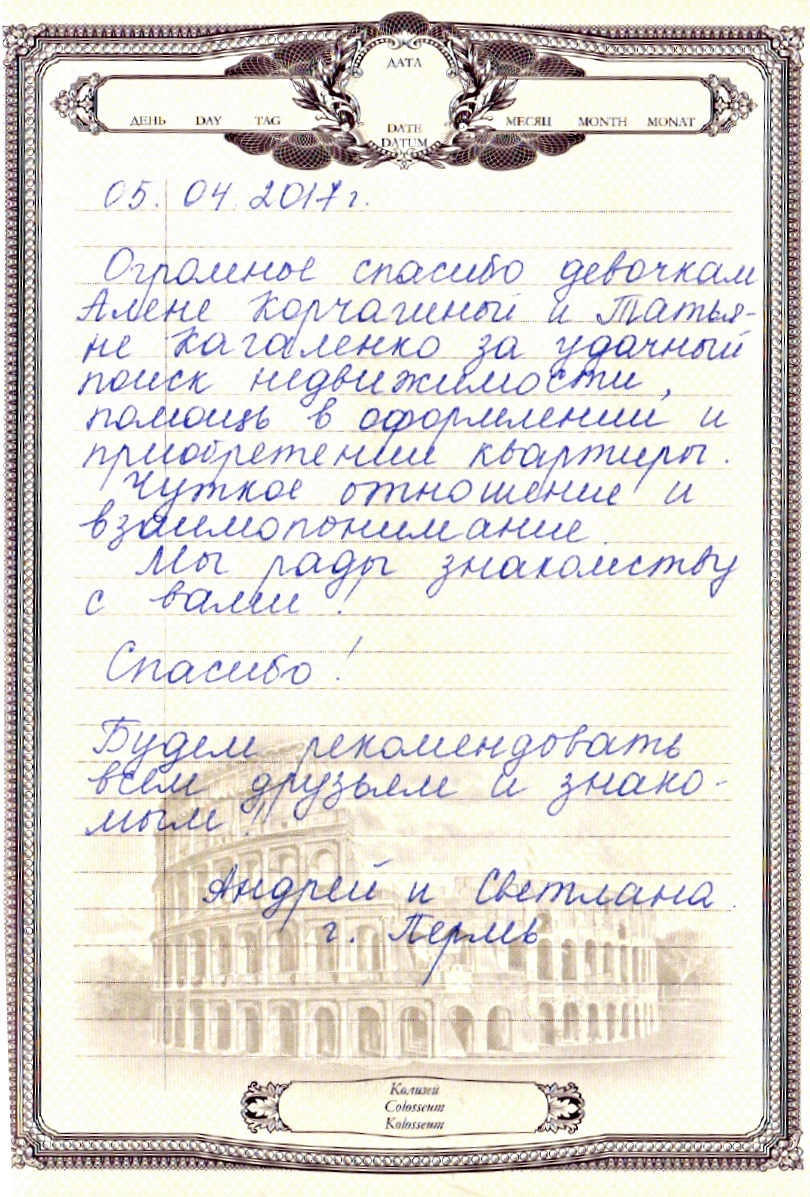 ДАТА
ДЕНЬ DAY TAG DATE МЕСЯЦ MONTH MONAT
DATUM
05. 04. 2017г.
Огромное спасибо девочкам
Алене Корчагиный и Татья-
не Кагаленко за удачный
поиск недвижимости,
помощь в оформлении и
приобретении квартиры.
Чуткое отношение и
взаимопонимание.
Мы рады знакомству
с вами!
Спасибо!
Будем рекомендовать
всем друзьям и знако-
мым!
Андрей и Светлана.
г. Пермь
Колизей
Colosseum
Kolosseum